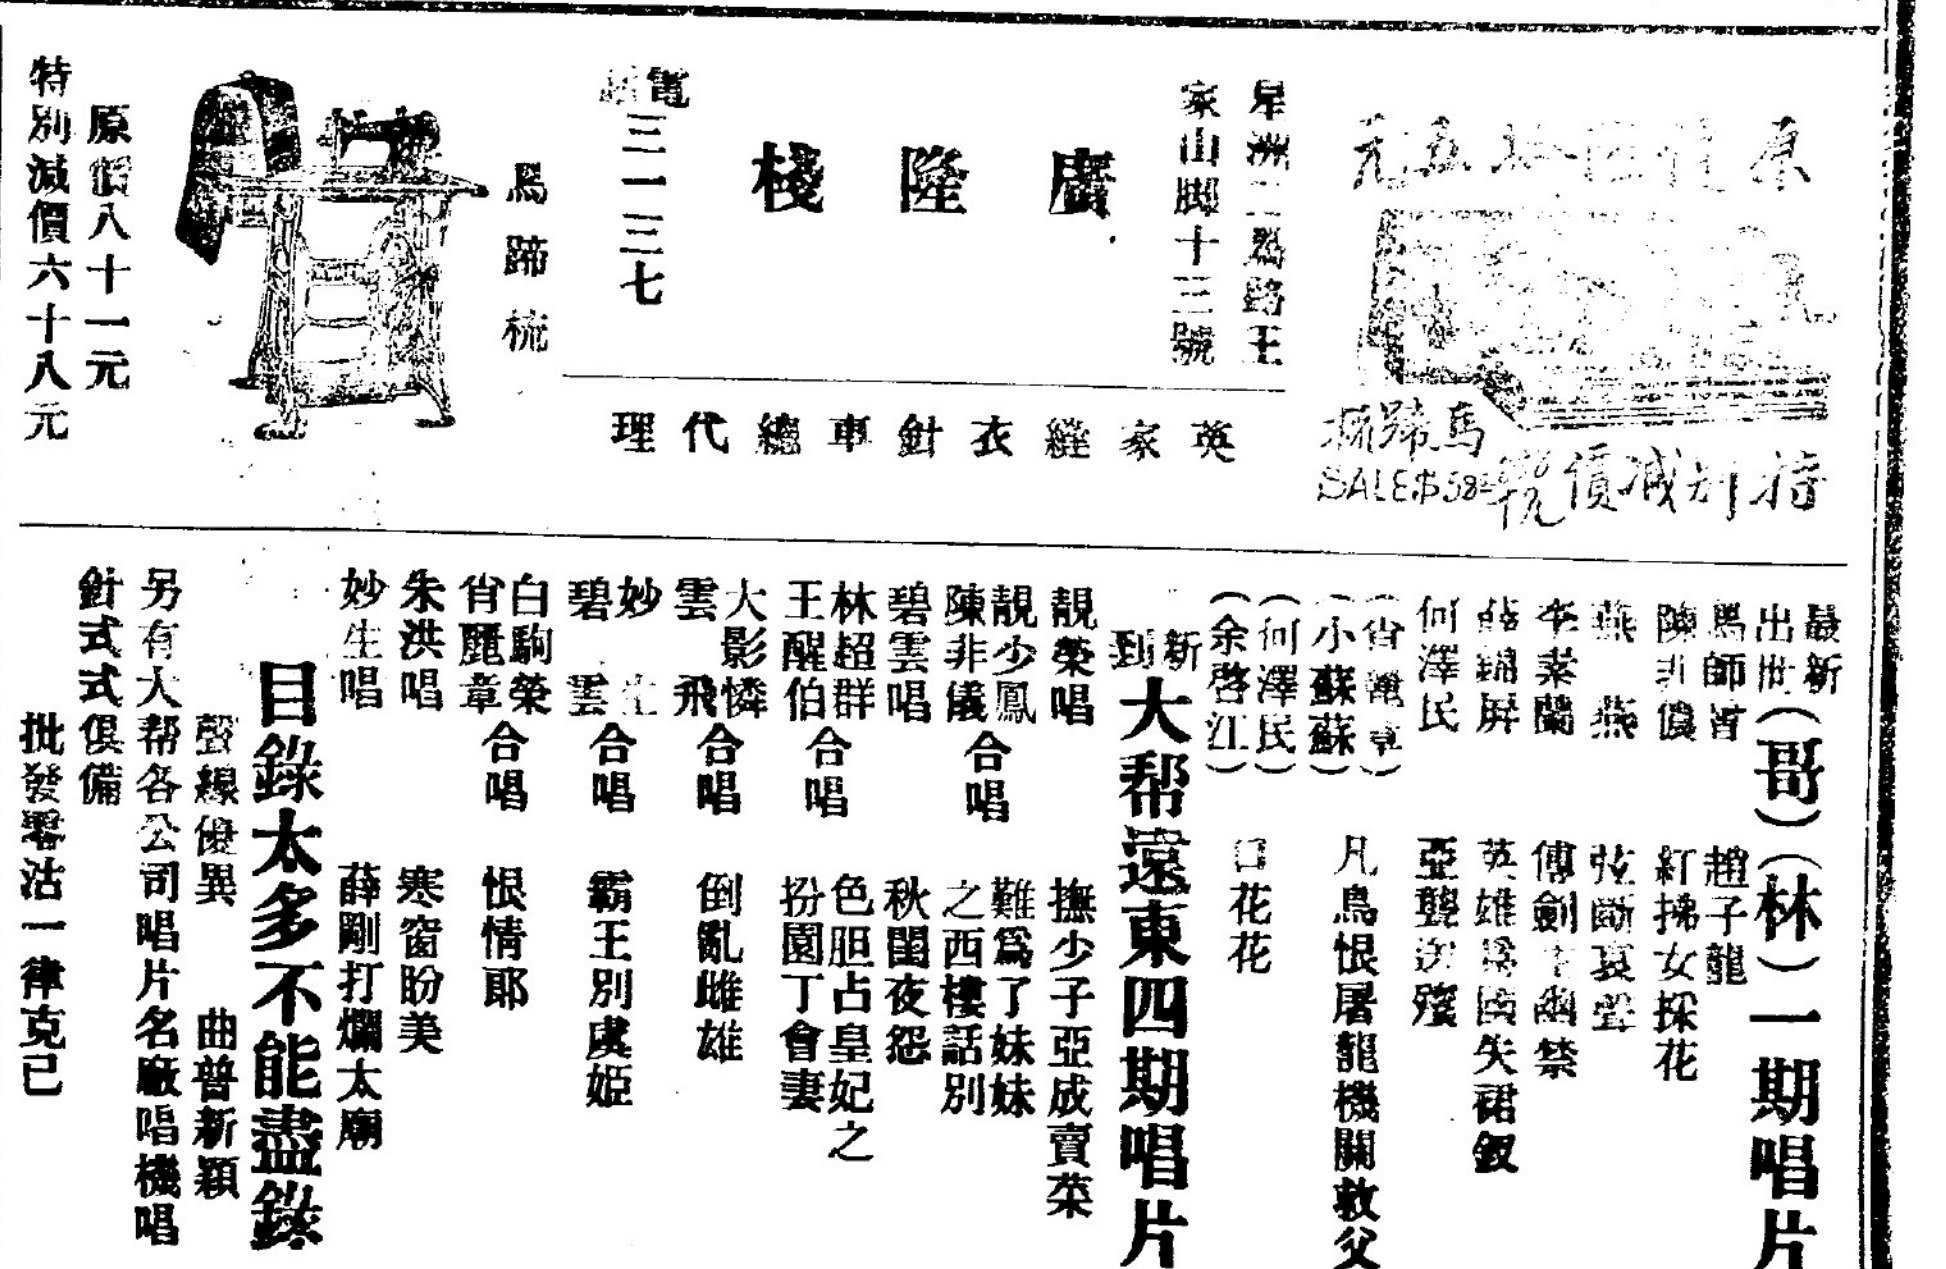 原價四拾五元
馬蹄梳
特別減價
SALE $58
星洲二馬路王
家山脚十三號
廣隆棧
電話三一三七
英家縫衣針車總代理
馬蹄梳
原價八十一元
特別減價六十八元
最新出世(哥)(林)一期唱片
馬師曾
陳非儂
趙子龍
紅拂女採花
燕燕
弦斷哀聲
李素蘭
薛錦屏
英雄爲國失裙釵
何澤民
(肖麗章)
(小蘇蘇)
凡鳥恨屠龍機關救父
(何澤民)
(余啓江)
花花
新到大帮遠東四期唱片
靚榮唱
撫少子亞成賣菜
靚少鳳
陳非儀
合唱
難爲了妹妹
之西樓話別
碧雲唱
秋閨夜怨
林超群
王醒伯
合唱
色胆占皇妃之
扮園丁會妻
大影憐
雲飛
合唱
倒亂雌雄
妙生
碧雲
合唱
霸王別虞姬
白駒榮
肖麗章
合唱
恨情郎
朱洪唱
寒窗盼美
妙生唱
薛剛打爛太廟
目錄太多不能盡錄
聲線優異
曲普新穎
另有大帮各公司唱片名廠唱機唱
針式式俱備
批發零沽一律克己